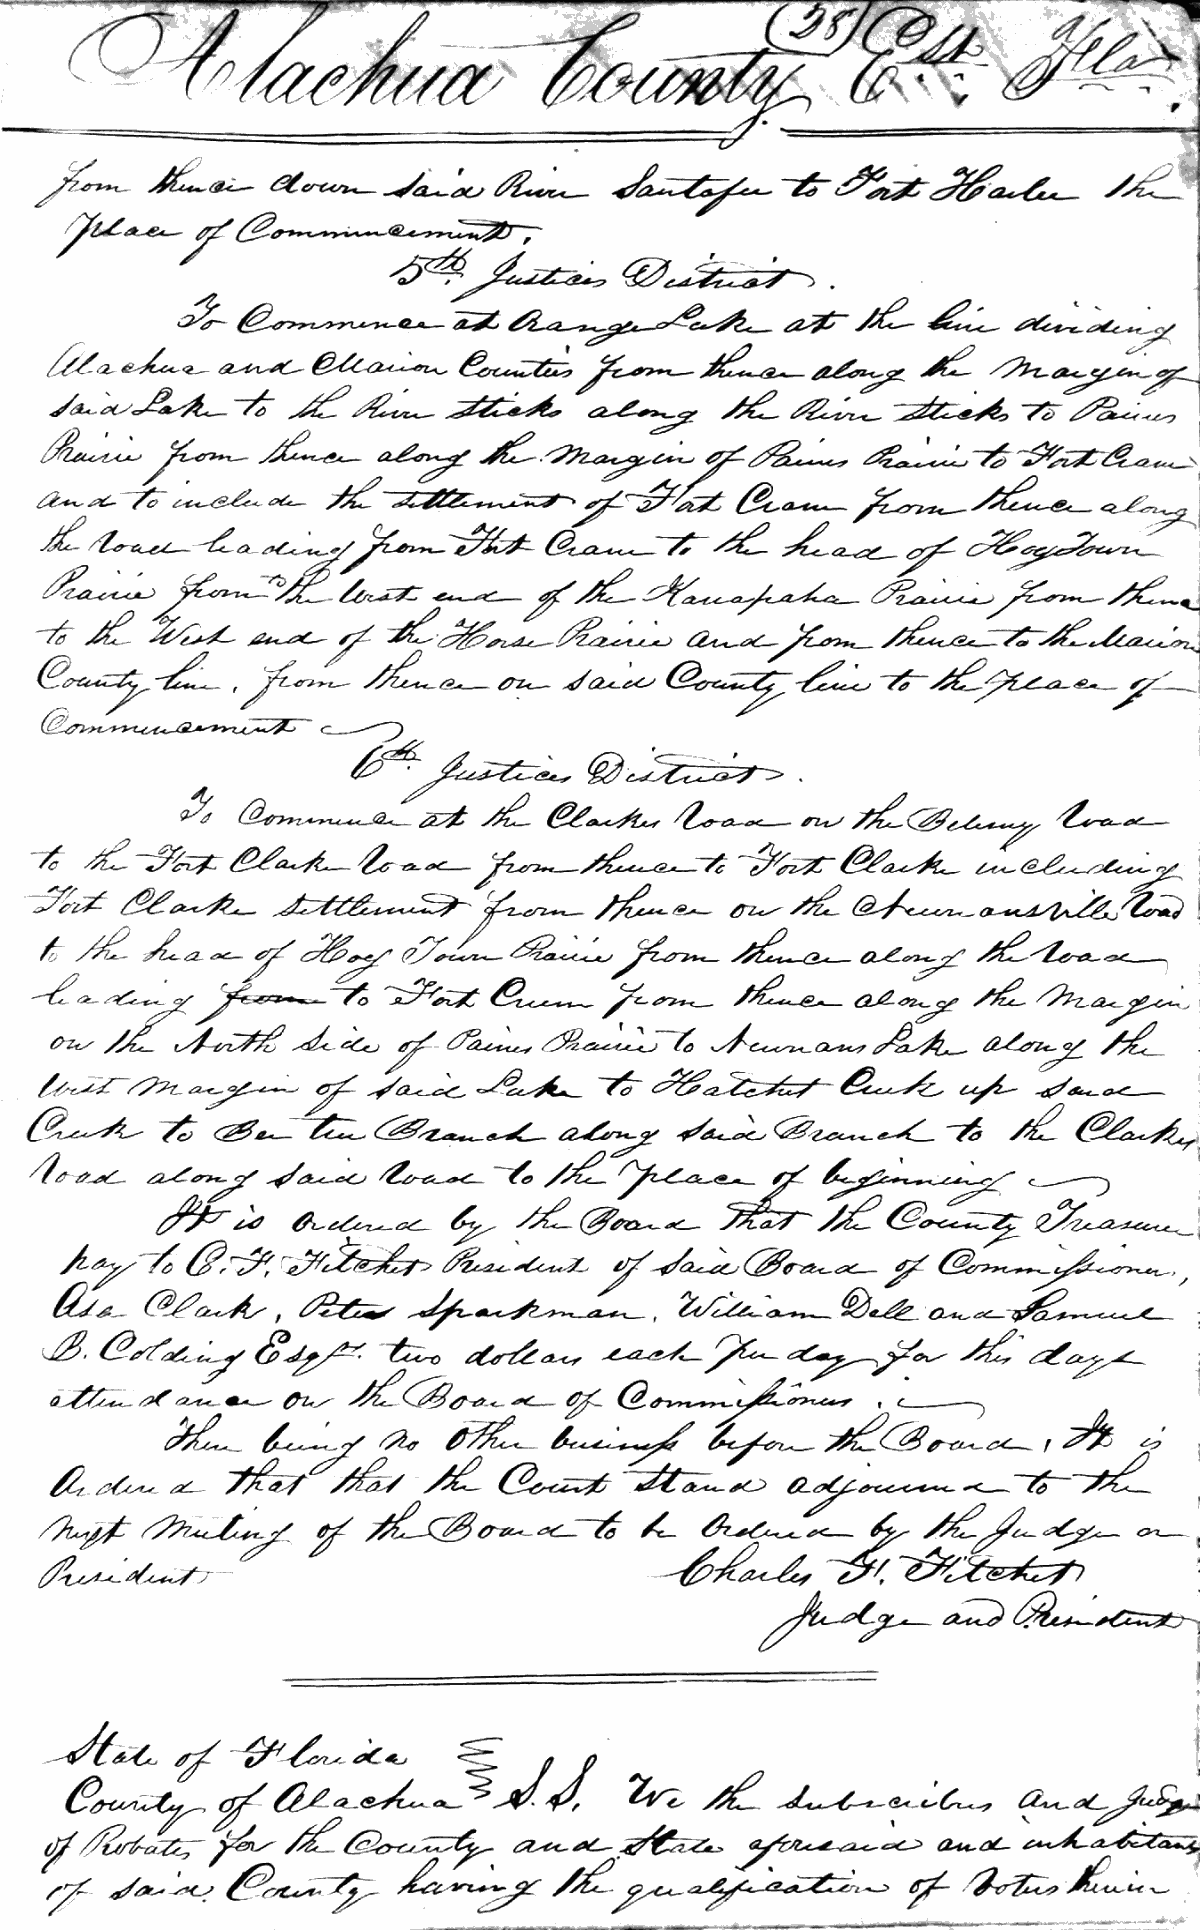 (28)
Alachua County Est. Fla.
from thence down said River Santafee to Fort Harlee the
place of Commencement.
5th. Justices District.
To Commence at Orange Lake at the line dividing
Alachua and Marion Counties from thence along the Margin of
said Lake to the River Sticks along the River Sticks to Paines
Prairie from thence along the Margin of Paines Prairie to Fort Crane
and to include the settlement of Fort Crane from thence along
the road leading from Fort Crane to the head of HogTown
Prairie from to the West end of the Kanapaha Prairie from thence
to the West end of the Horse Prairie and from thence to the Marion
County line, from thence on said County line to the place of
Commencement
6th. Justices District.
To Commence at the Clarkes road on the Belemy road
to the Fort Clark road from thence to Fort Clarke including
Fort Clarke settlement from thence on the Newnansville Road
to the head of Hog Town Prairie from thence along the road
leading from to Fort Crum from thence along the Margin
on the North side of Paines Prairie to Newnans Lake along the
West margin of said Lake to Hatchet Creek up said
Creek to Bee tree Branch along said Branch to the Clarkes
road along said road to the place of beginning
It is ordered by the Board that the County Treasurer
pay to C. F. Fitchet President of said Board of Commissioners,
Asa Clark, Peter Sparkman, William Dell and Samuel
B. Colding Esqrs. two dollars each per day for this days
attendance on the Board of Commissioners.
There being no other business before the Board, It is
Ordered that that the Court Stand adjourned to the
next Meeting of the Board to be Ordered by the Judge or
President
Charles F. Fitchet
Judge and President
State of Florida
County of Alachua S.S. We the subscribers and Judge
of Probates for the County and State aforesaid and inhabitants
of said County having the qualification of Voters therein